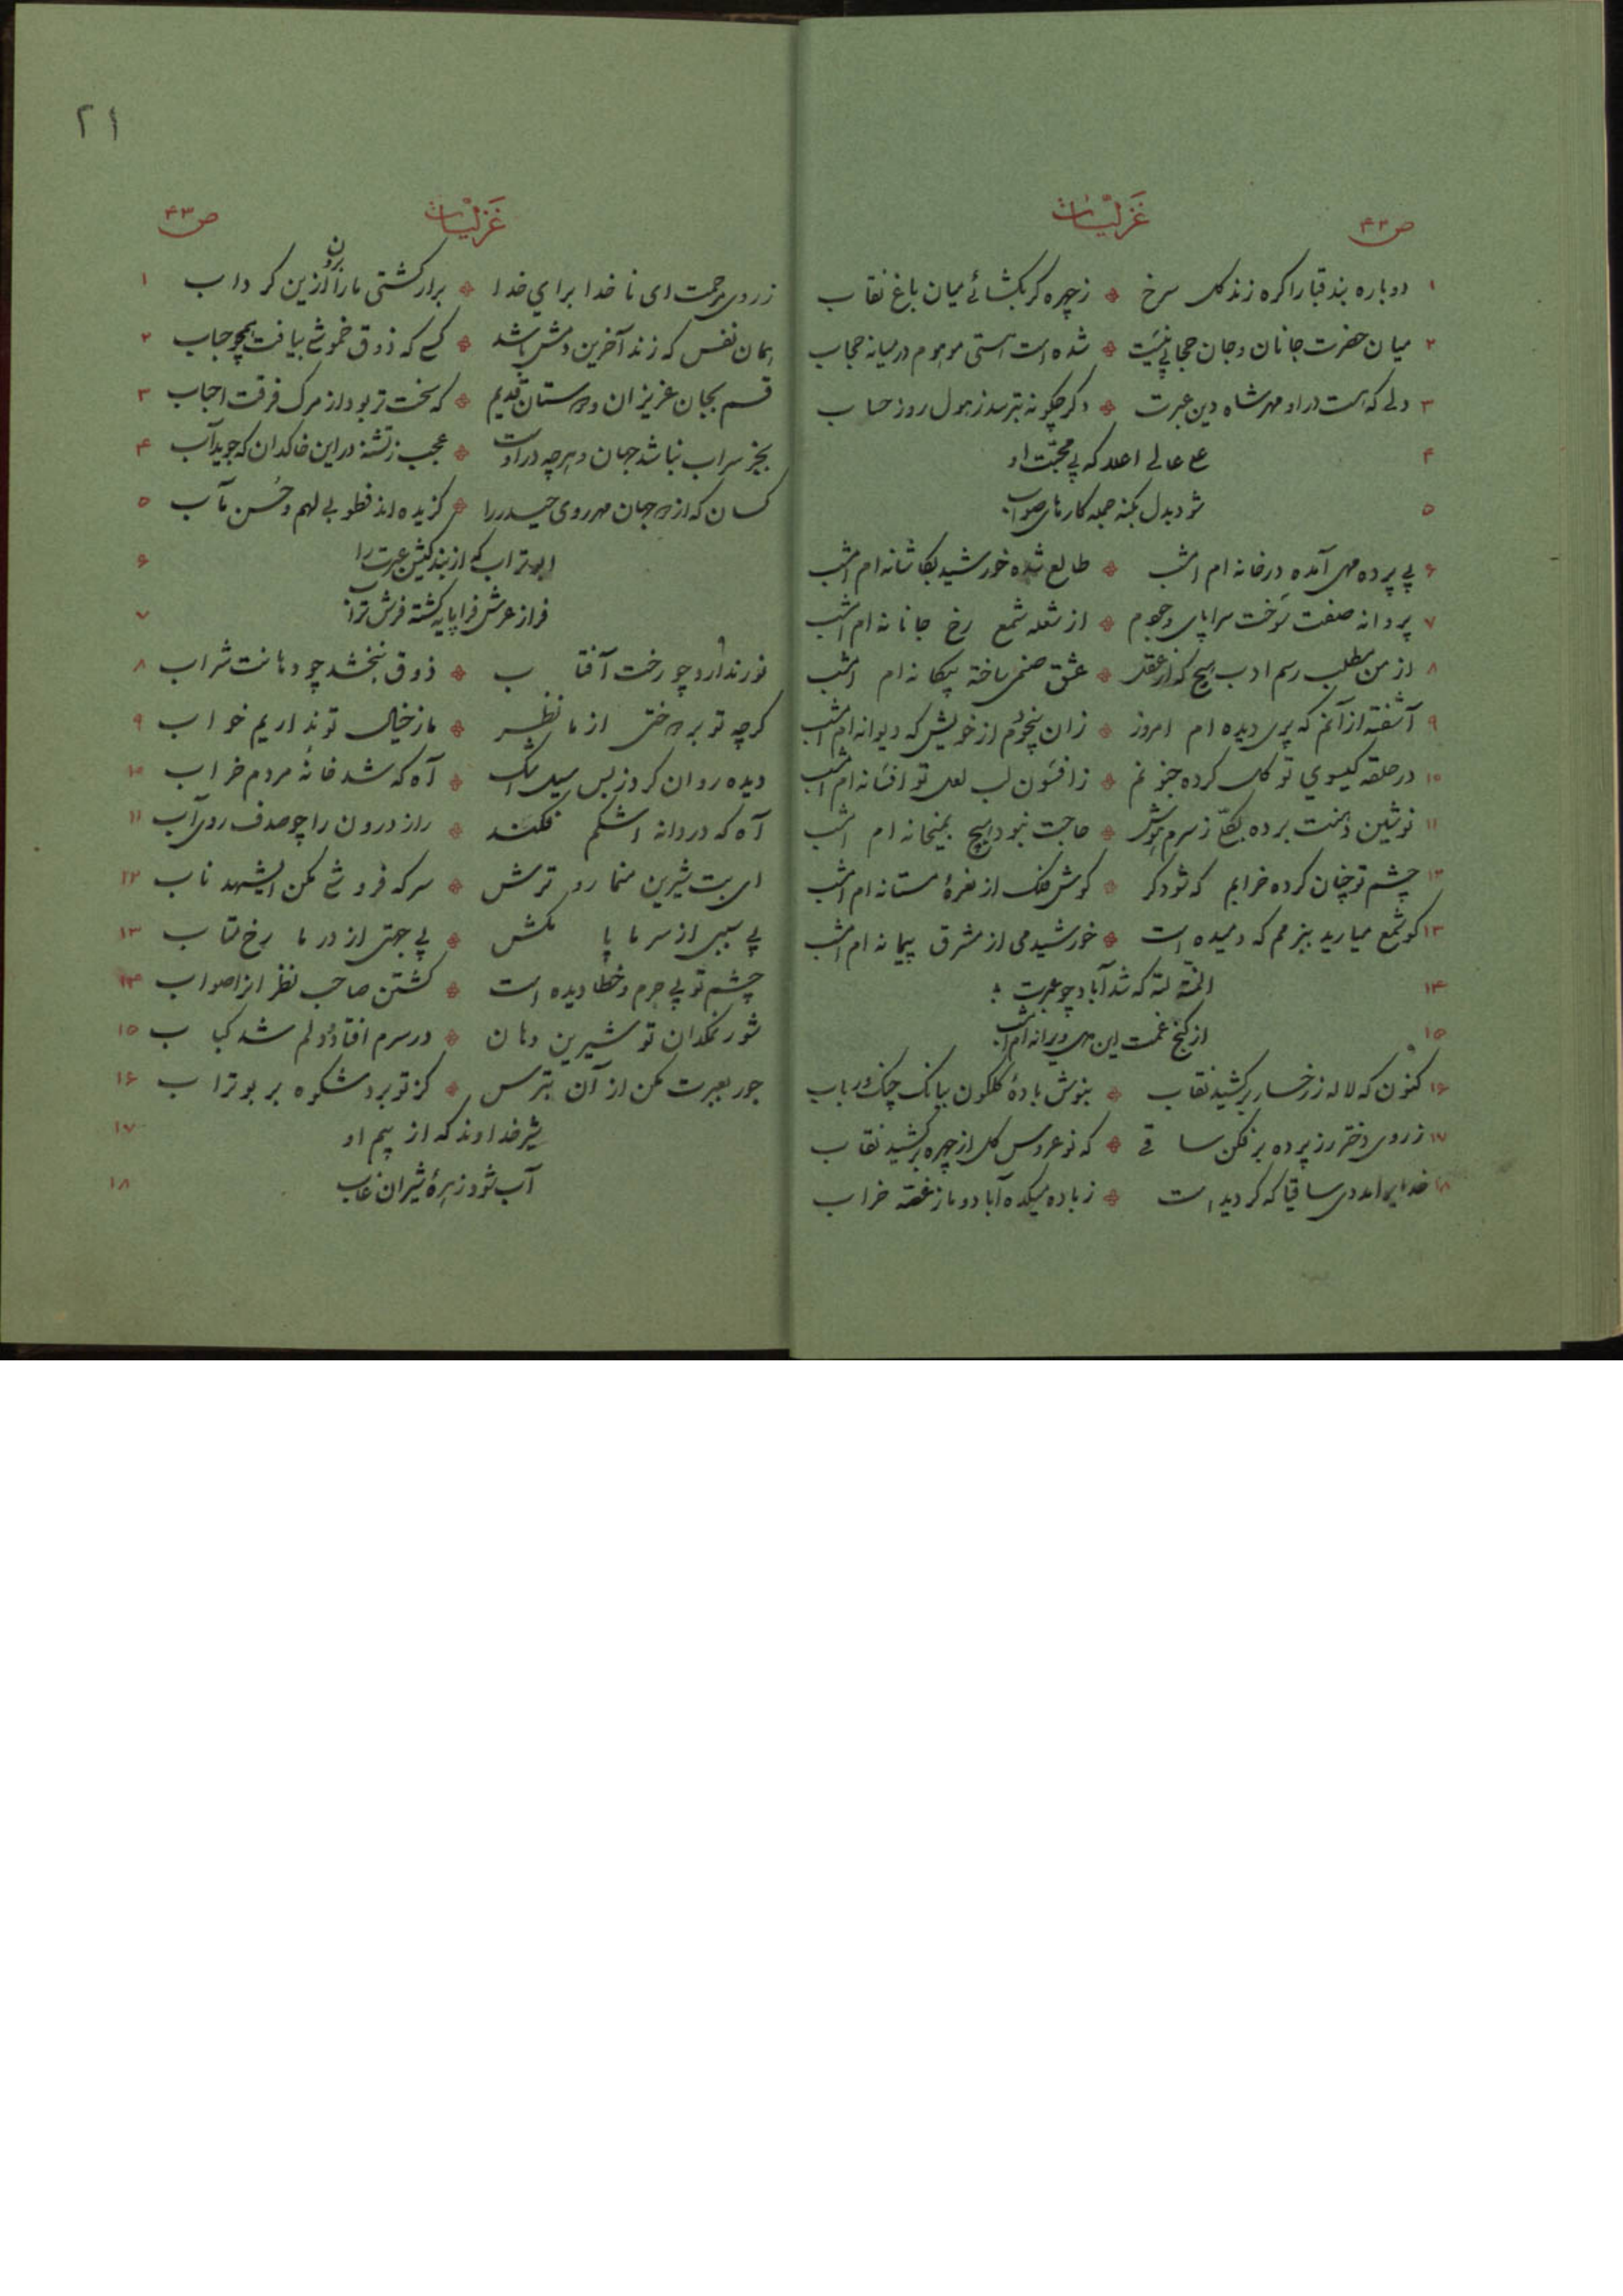 ص ۴۲ غَزَلیّات
۱ دوباره بند قبا را گره زند گل سرخ * ز چهره گر بگشائے میان باغ نقاب
۲ میان حضرت جانان و جان حجابی نیست * شده است هستی موهوم در میانه حجاب
۳ دلی که هست در او مهر شاه دین عبرت * دگر چگونه بترسد ز هول روز حساب
۴ علے عالے اعلا که بی محبّت او
۵ شود بدل بگنه جمله کارهای صواب
۶ بی پرده مهی آمده در خانه ام امشب * طالع شده خورشید بکاشانه ام امشب
۷ پروانه صفت سوخت سراپای وجودم * از شعله شمع رخ جانانه ام امشب
۸ از من مطلب رسم ادب هیچ که از عقل * عشق صنمی ساخته بیگانه ام امشب
۹ آشفته از آنم که پری دیده ام امروز * زان بیخودم از خویش که دیوانه ام امشب
۱۰ در حلقه گیسوی تو گل کرده جنونم * ز افسون لب لعل تو افسانه ام امشب
۱۱ نوشین دهنت برده بکلّ ز سرم هوش * حاجت نبود هیچ بمیخانه ام امشب
۱۲ چشم تو چنان کرده خرابم که شود کر * گوش فلک از نعرهٔ مستانه ام امشب
۱۳ گو شمع میارید ببزمم که دمیده است * خورشید می از مشرق پیمانه ام امشب
۱۴ المنّة لله که شد آباد چو عبرت
۱۵ از گنج غمت این دل ویرانه ام امشب
۱۶ کنون که لاله ز رخسار برکشید نقاب * بنوش بادهٔ گلگون ببانگ چنگ و رباب
۱۷ ز روی دختر رز پرده برفکن ساقے * که نوعروس گل از چهره برکشید نقاب
۱۸ خدایرا مددی ساقیا که گردیده است * ز باده میکده آباد و ما ز غصّه خراب
۲۱
غَزَلیّات ص ۴۳
ز روی مرحمت ای ناخدا برای خدا * برآر کشتی ما را برون ازین گرداب ۱
همان نفس که زند آخرین دمش باشد * کسے که ذوق خموشے بیافت همچو حباب ۲
قسم بجان عزیزان و دوستان قدیم * که سخت تر بود از مرگ فرقت احباب ۳
بجز سراب نباشد جهان و هرچه در اوست * عجب ز تشنه در این خاکدان که جوید آب ۴
کسان که از دو جهان مهر روی حیدر را * گزیده اند فطوبی لهم و حُسن مآب ۵
ابوتراب که از بندگیش عبرت را ۶
فراز عرش فراپایه گشته فرش تراب ۷
نور ندارد چو رخت آفتاب * ذوق نبخشد چو دهانت شراب ۸
گرچه تو برداختی از ما نظر * ما ز خیال تو نداریم خواب ۹
دیده روان کرد ز بس سیل اشک * آه که شد خانهٔ مردم خراب ۱۰
آه که دردانه اشکم فکند * راز درون را چو صدف روی آب ۱۱
ای بت شیرین منما رو ترش * سرکه فروشے مکن ای شهد ناب ۱۲
بی سببی از سر ما پا مکش * بی جهتی از در ما رخ متاب ۱۳
چشم تو بی جرم و خطا دیده است * کشتن صاحب نظرانرا صواب ۱۴
شور نمکدان تو شیرین دهان * در سرم افتاد و دلم شد کباب ۱۵
جور بعبرت مکن از آن بترس * کز تو برد شکوه بر بوتراب ۱۶
شیر خداوند که از بیم او ۱۷
آب شود زهرهٔ شیران غاب ۱۸